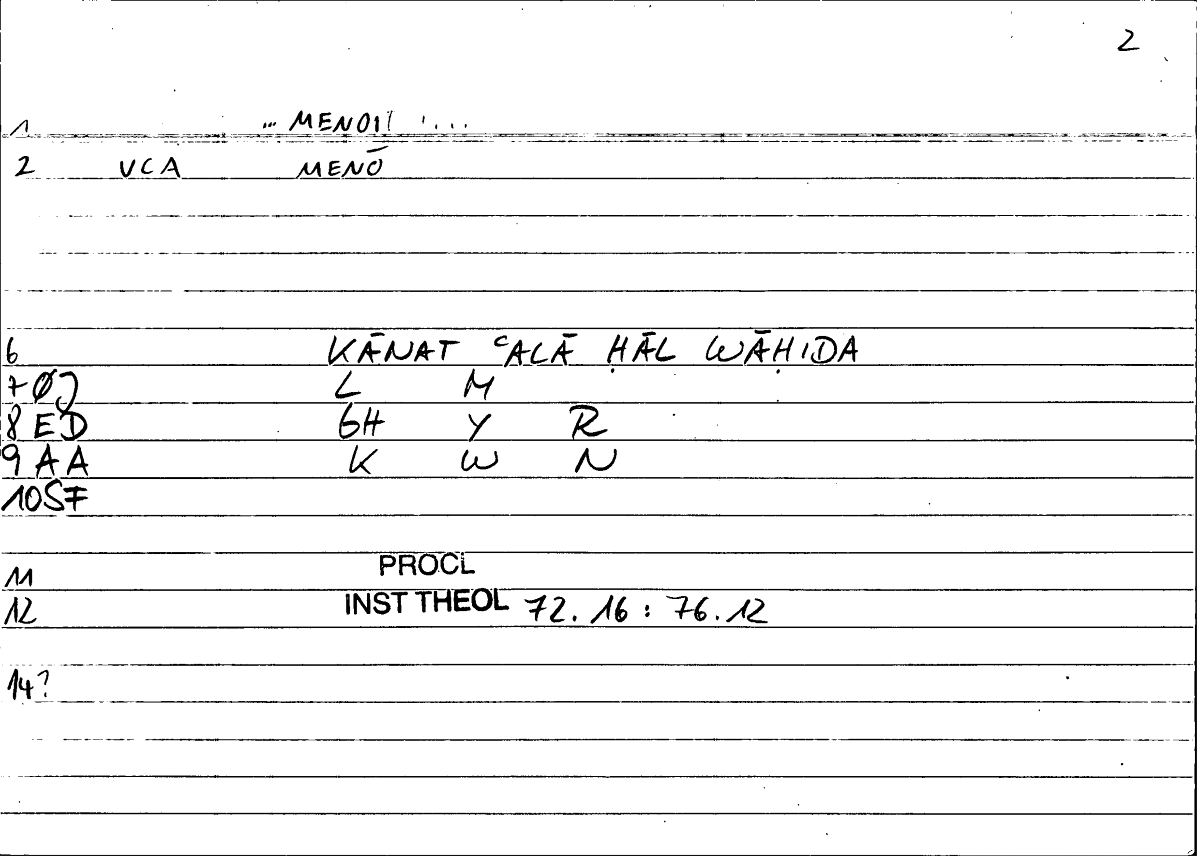 2
1 ... MENOI! ....
2 VCA MENŌ
6 KĀNAT ʿALĀ ḤĀL WĀḤIDA
7 ØJ L M
8 ED GH Y R
9 AA K W N
10 SF
11 PROCL
12 INST THEOL 72. 16 : 76. 12
14?